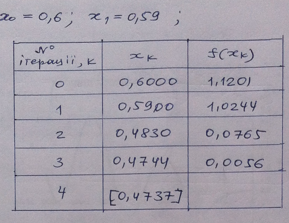 x₀ = 0,6 ; x₁ = 0,59 ;
№ ітерації, к xк f(xк)
0 0,6000 1,1201
1 0,5900 1,0244
2 0,4830 0,0765
3 0,4744 0,0056
4 [0,4737]